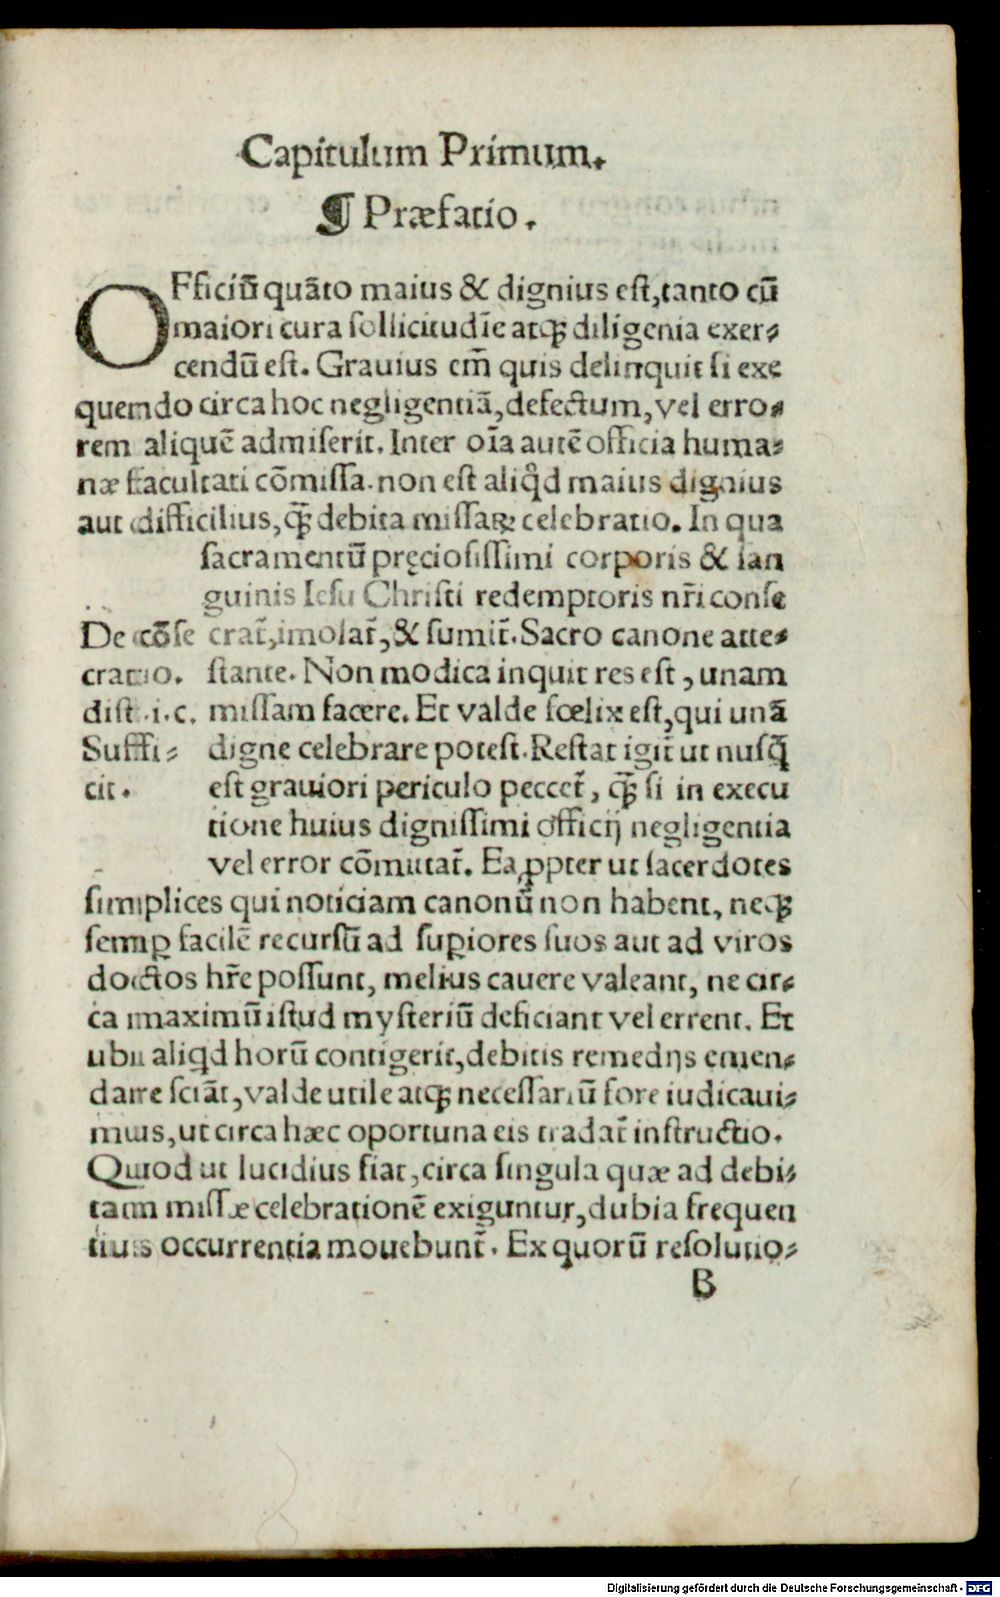 Capitulum Primum.
¶ Præfatio.
OFficiū quāto maius & dignius est, tanto cū
maiori cura sollicitudīe atq̃ diligenia exer⸗
cendū est. Grauius em̄ quis delinquit si exe
quendo circa hoc negligentiā, defectum, vel erro⸗
rem aliquē admiserit. Inter oīa autē officia huma⸗
næ facultati cōmissa. non est aliq̊d maius dignius
aut difficilius, q̃ debita missaꝝ celebratio. In qua
sacramentū pręciosissimi corporis & san
guinis Iesu Christi redemptoris nr̄i conse
crat̄, imolat̄, & sumit̄. Sacro canone atte⸗
stante. Non modica inquit res est, unam
missam facere. Et valde fœlix est, qui unā
digne celebrare potest. Restat igit̄ ut nusq̃
est grauiori periculo peccet̄, q̃ si in execu
tione huius dignissimi officij negligentia
vel error cōmittat̄. Ea ꝓpter ut sacerdotes
simplices qui noticiam canonū non habent, neq̃
semꝑ facilē recursū ad suꝑiores suos aut ad viros
doctos hr̄e possunt, melius cauere valeant, ne cir⸗
ca maximū istud mysteriū deficiant vel errent. Et
ubi aliqd horū contigerit, debitis remedijs emen⸗
dare sciāt, valde utile atq̃ necessariū fore iudicaui⸗
mus, ut circa hæc oportuna eis tradat̄ instructio.
Quod ut lucidius fiat, circa singula quæ ad debi⸗
tam missæ celebrationē exiguntur, dubia frequen
tius occurrentia mouebunt̄. Ex quorū resolutio⸗
B
De cōse
cratio.
dist .i. c.
Suffi⸗
cit.
Digitalisierung gefördert durch die Deutsche Forschungsgemeinschaft - DFG